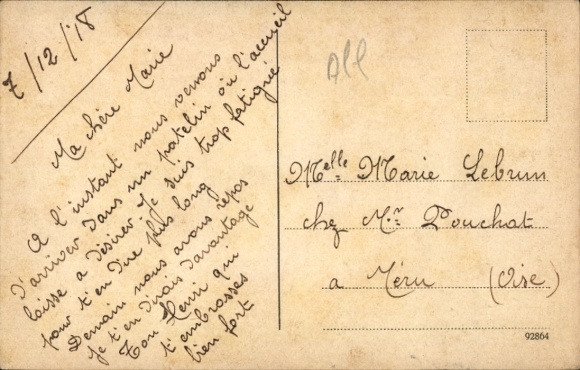 7/12/18
Ma chère Marie
A l'instant nous venons
d'arriver dans un patelin où l'accueil
laisse a désirer. Je suis trop fatiguée
pour t'en dire plus long
Demain nous avons repos
je t'en dirais davantage
Ton Henri qui
t'embrasses
bien fort
All
Melle Marie Lebrun
chez Mr Pouchat
a Méru (Oise)
92864